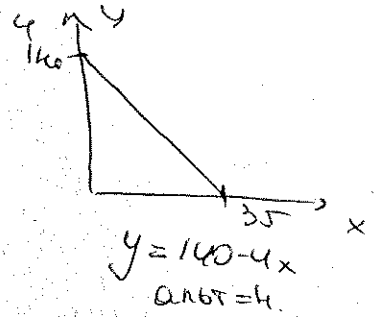 4 y
140
35 x
y=140-4x
альт=4.